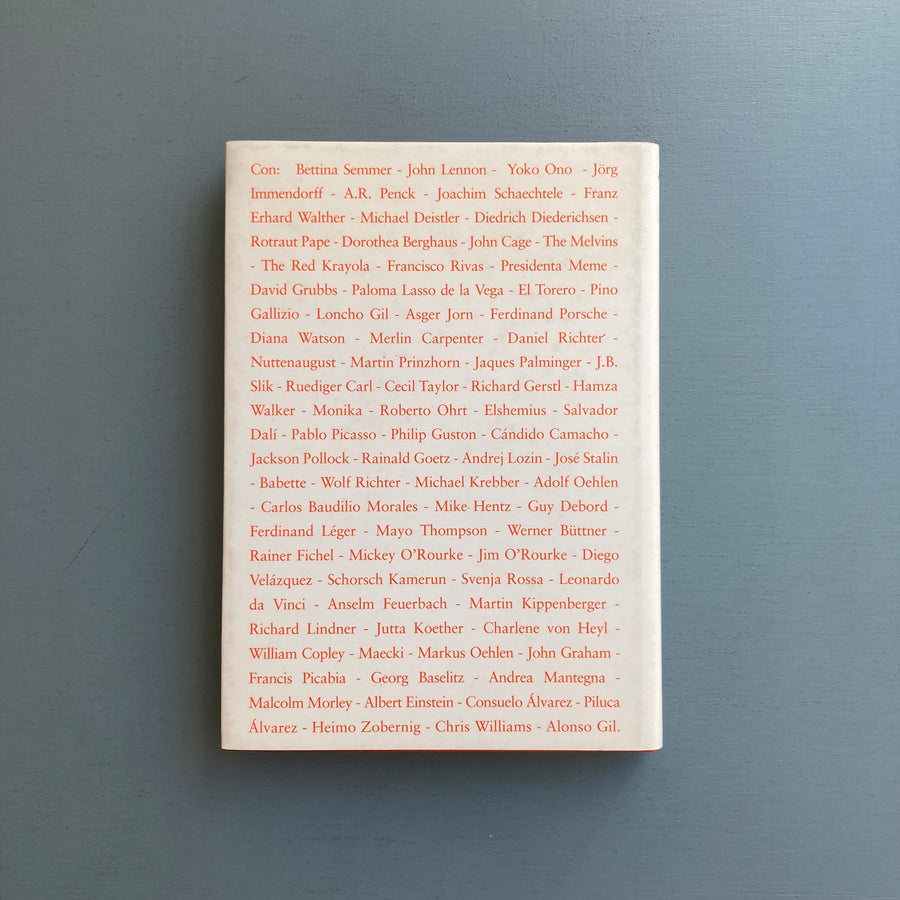 Con: Bettina Semmer - John Lennon - Yoko Ono - Jörg
Immendorff - A.R. Penck - Joachim Schaechtele - Franz
Erhard Walther - Michael Deistler - Diedrich Diederichsen -
Rotraut Pape - Dorothea Berghaus - John Cage - The Melvins
- The Red Krayola - Francisco Rivas - Presidenta Meme -
David Grubbs - Paloma Lasso de la Vega - El Torero - Pino
Gallizio - Loncho Gil - Asger Jorn - Ferdinand Porsche -
Diana Watson - Merlin Carpenter - Daniel Richter -
Nuttenaugust - Martin Prinzhorn - Jaques Palminger - J.B.
Slik - Ruediger Carl - Cecil Taylor - Richard Gerstl - Hamza
Walker - Monika - Roberto Ohrt - Elshemius - Salvador
Dalí - Pablo Picasso - Philip Guston - Cándido Camacho -
Jackson Pollock - Rainald Goetz - Andrej Lozin - José Stalin
- Babette - Wolf Richter - Michael Krebber - Adolf Oehlen
- Carlos Baudilio Morales - Mike Hentz - Guy Debord -
Ferdinand Léger - Mayo Thompson - Werner Büttner -
Rainer Fichel - Mickey O'Rourke - Jim O'Rourke - Diego
Velázquez - Schorsch Kamerun - Svenja Rossa - Leonardo
da Vinci - Anselm Feuerbach - Martin Kippenberger -
Richard Lindner - Jutta Koether - Charlene von Heyl -
William Copley - Maecki - Markus Oehlen - John Graham -
Francis Picabia - Georg Baselitz - Andrea Mantegna -
Malcolm Morley - Albert Einstein - Consuelo Álvarez - Piluca
Álvarez - Heimo Zobernig - Chris Williams - Alonso Gil.